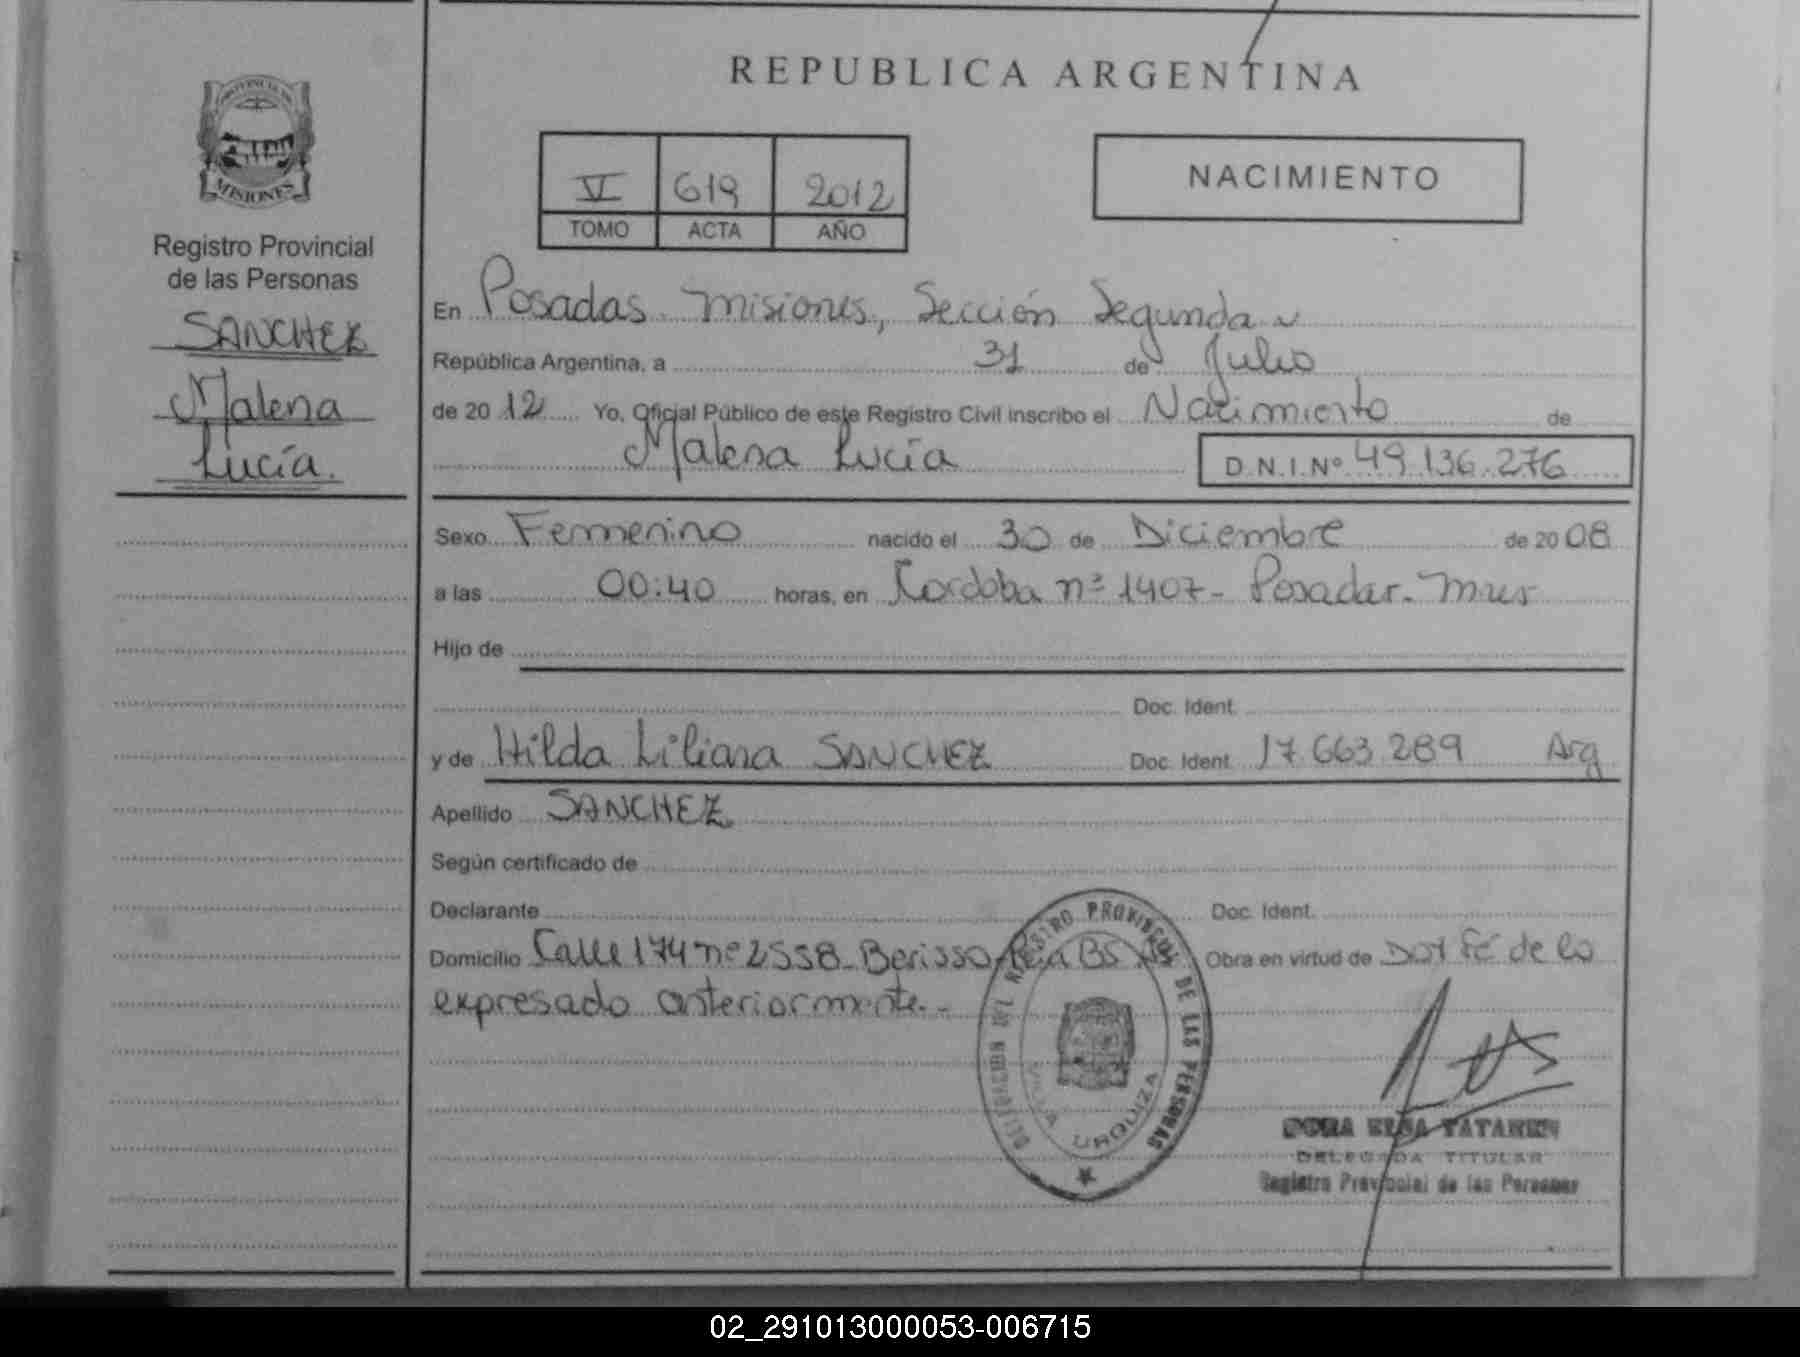 REPUBLICA ARGENTINA
PROVINCIA DE
MISIONES
Registro Provincial
de las Personas
SANCHEZ
Malena
Lucía.
VI 619 2012
TOMO ACTA AÑO
NACIMIENTO
En Posadas Misiones, Sección Segunda
República Argentina, a 31 de Julio
de 2012 Yo, Oficial Público de este Registro Civil inscribo el Nacimiento de
Malena Lucía D.N.I.Nº 49.136.276
Sexo Femenino nacido el 30 de Diciembre de 2008
a las 00:40 horas, en Córdoba nº 1407- Posadas-
Hijo de
Doc. Ident.
y de Hilda Liliana SANCHEZ Doc. Ident. 17.663.289 Arg
Apellido SANCHEZ
Según certificado de
Declarante Doc. Ident.
Domicilio Calle 174 nº 2558- Berisso BS As Obra en virtud de DOY fé de lo
expresado anteriormente.-
DELEGACION DEL REGISTRO PROVINCIAL DE LAS PERSONAS
VILLA URQUIZA
DELEGADA TITULAR
Registro Provincial de las Personas
02_291013000053-006715